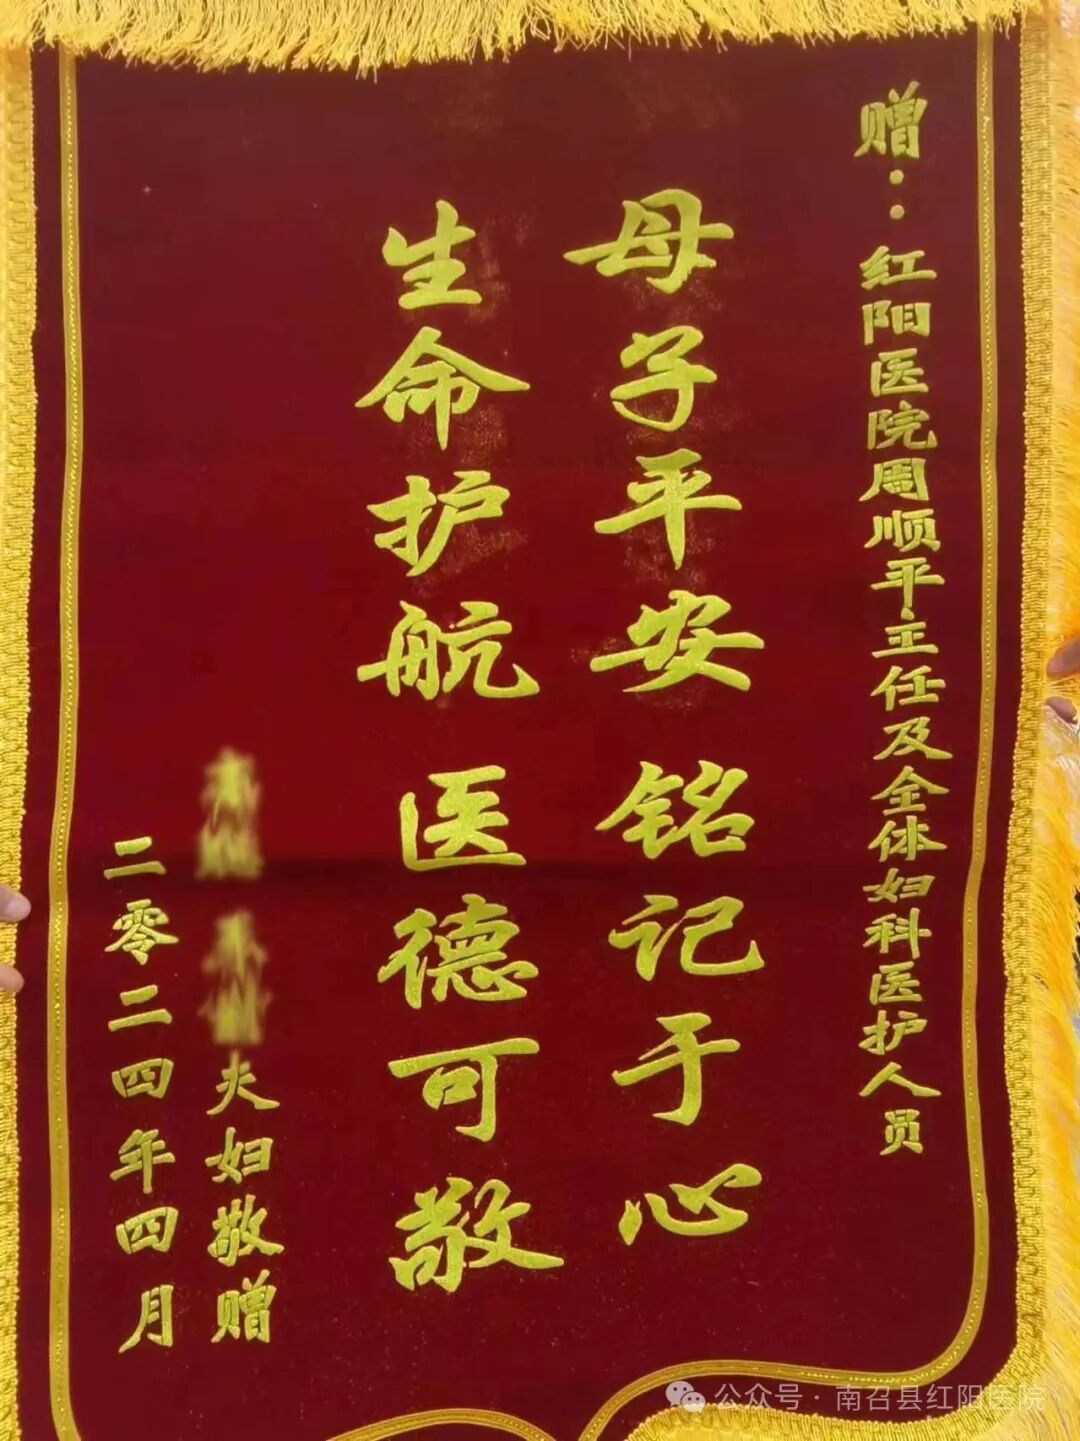 赠：红阳医院周顺平主任及全体妇科医护人员
母子平安 铭记于心
生命护航 医德可敬
夫妇敬赠
二零二四年四月
公众号·南召县红阳医院